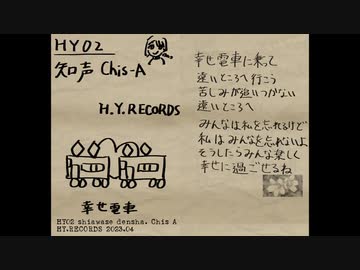 HY02
知声 Chis-A
H.Y.RECORDS
幸せ電車
HY02 shiawase densha. Chis A
HY.RECORDS 2023.04
幸せ電車に乗って
遠いところへ行こう
苦しみが追いつかない
遠いところへ
みんなは私を忘れるけど
私はみんなを忘れないよ
そうしたらみんな楽しく
幸せに過ごせるね